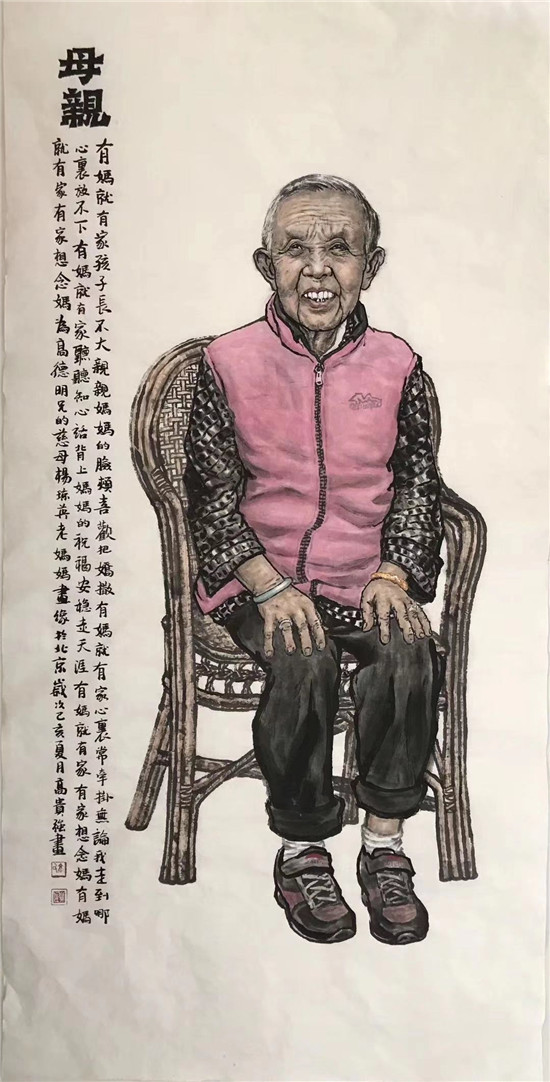 母親
有媽就有家孩子長不大親親媽媽的臉頰喜歡把嬌撒有媽就有家心裏常牽掛無論我走到哪
心裏放不下有媽就有家聽聽知心話背上媽媽的祝福安穩走天涯有媽就有家有家想念媽有媽
就有家有家想念媽為高德明兄的慈母楊老媽媽畫像於北京歲次己亥夏月高貴強畫